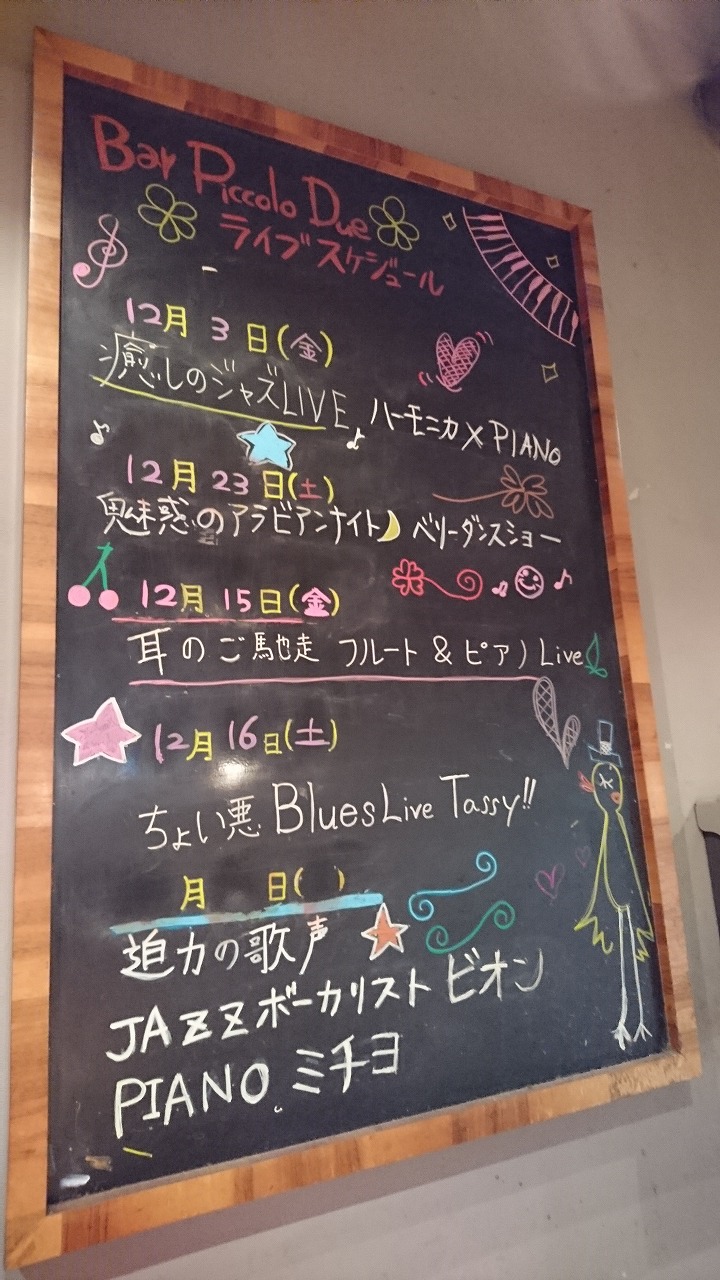 Bar Piccolo Due
ライブスケジュール
12月 3 日(金)
癒しのジャズLIVE ハーモニカ×PIANO
12月 23 日(土)
魅惑のアラビアンナイト ベリーダンスショー
12月 15日(金)
耳のご馳走 フルート & ピアノ Live
12月 16日(土)
ちょい悪 Blues Live Tassy!!
月 日( )
迫力の歌声
JAZZボーカリスト ビオン
PIANO ミチヨ